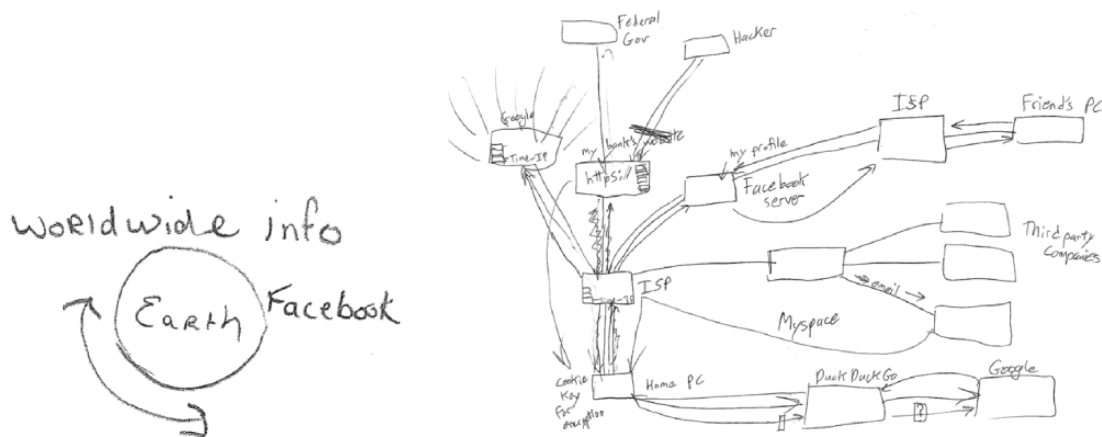 worldwide info
Earth
Facebook
Federal
Gov
Hacker
Google
Time-IP
my bank's website
https://
my profile
Facebook
server
ISP
Friend's PC
Third party
Companies
email
Myspace
ISP
Time-IP
Cookie
Key
for
encryption
Home PC
DuckDuckGo
Google
?